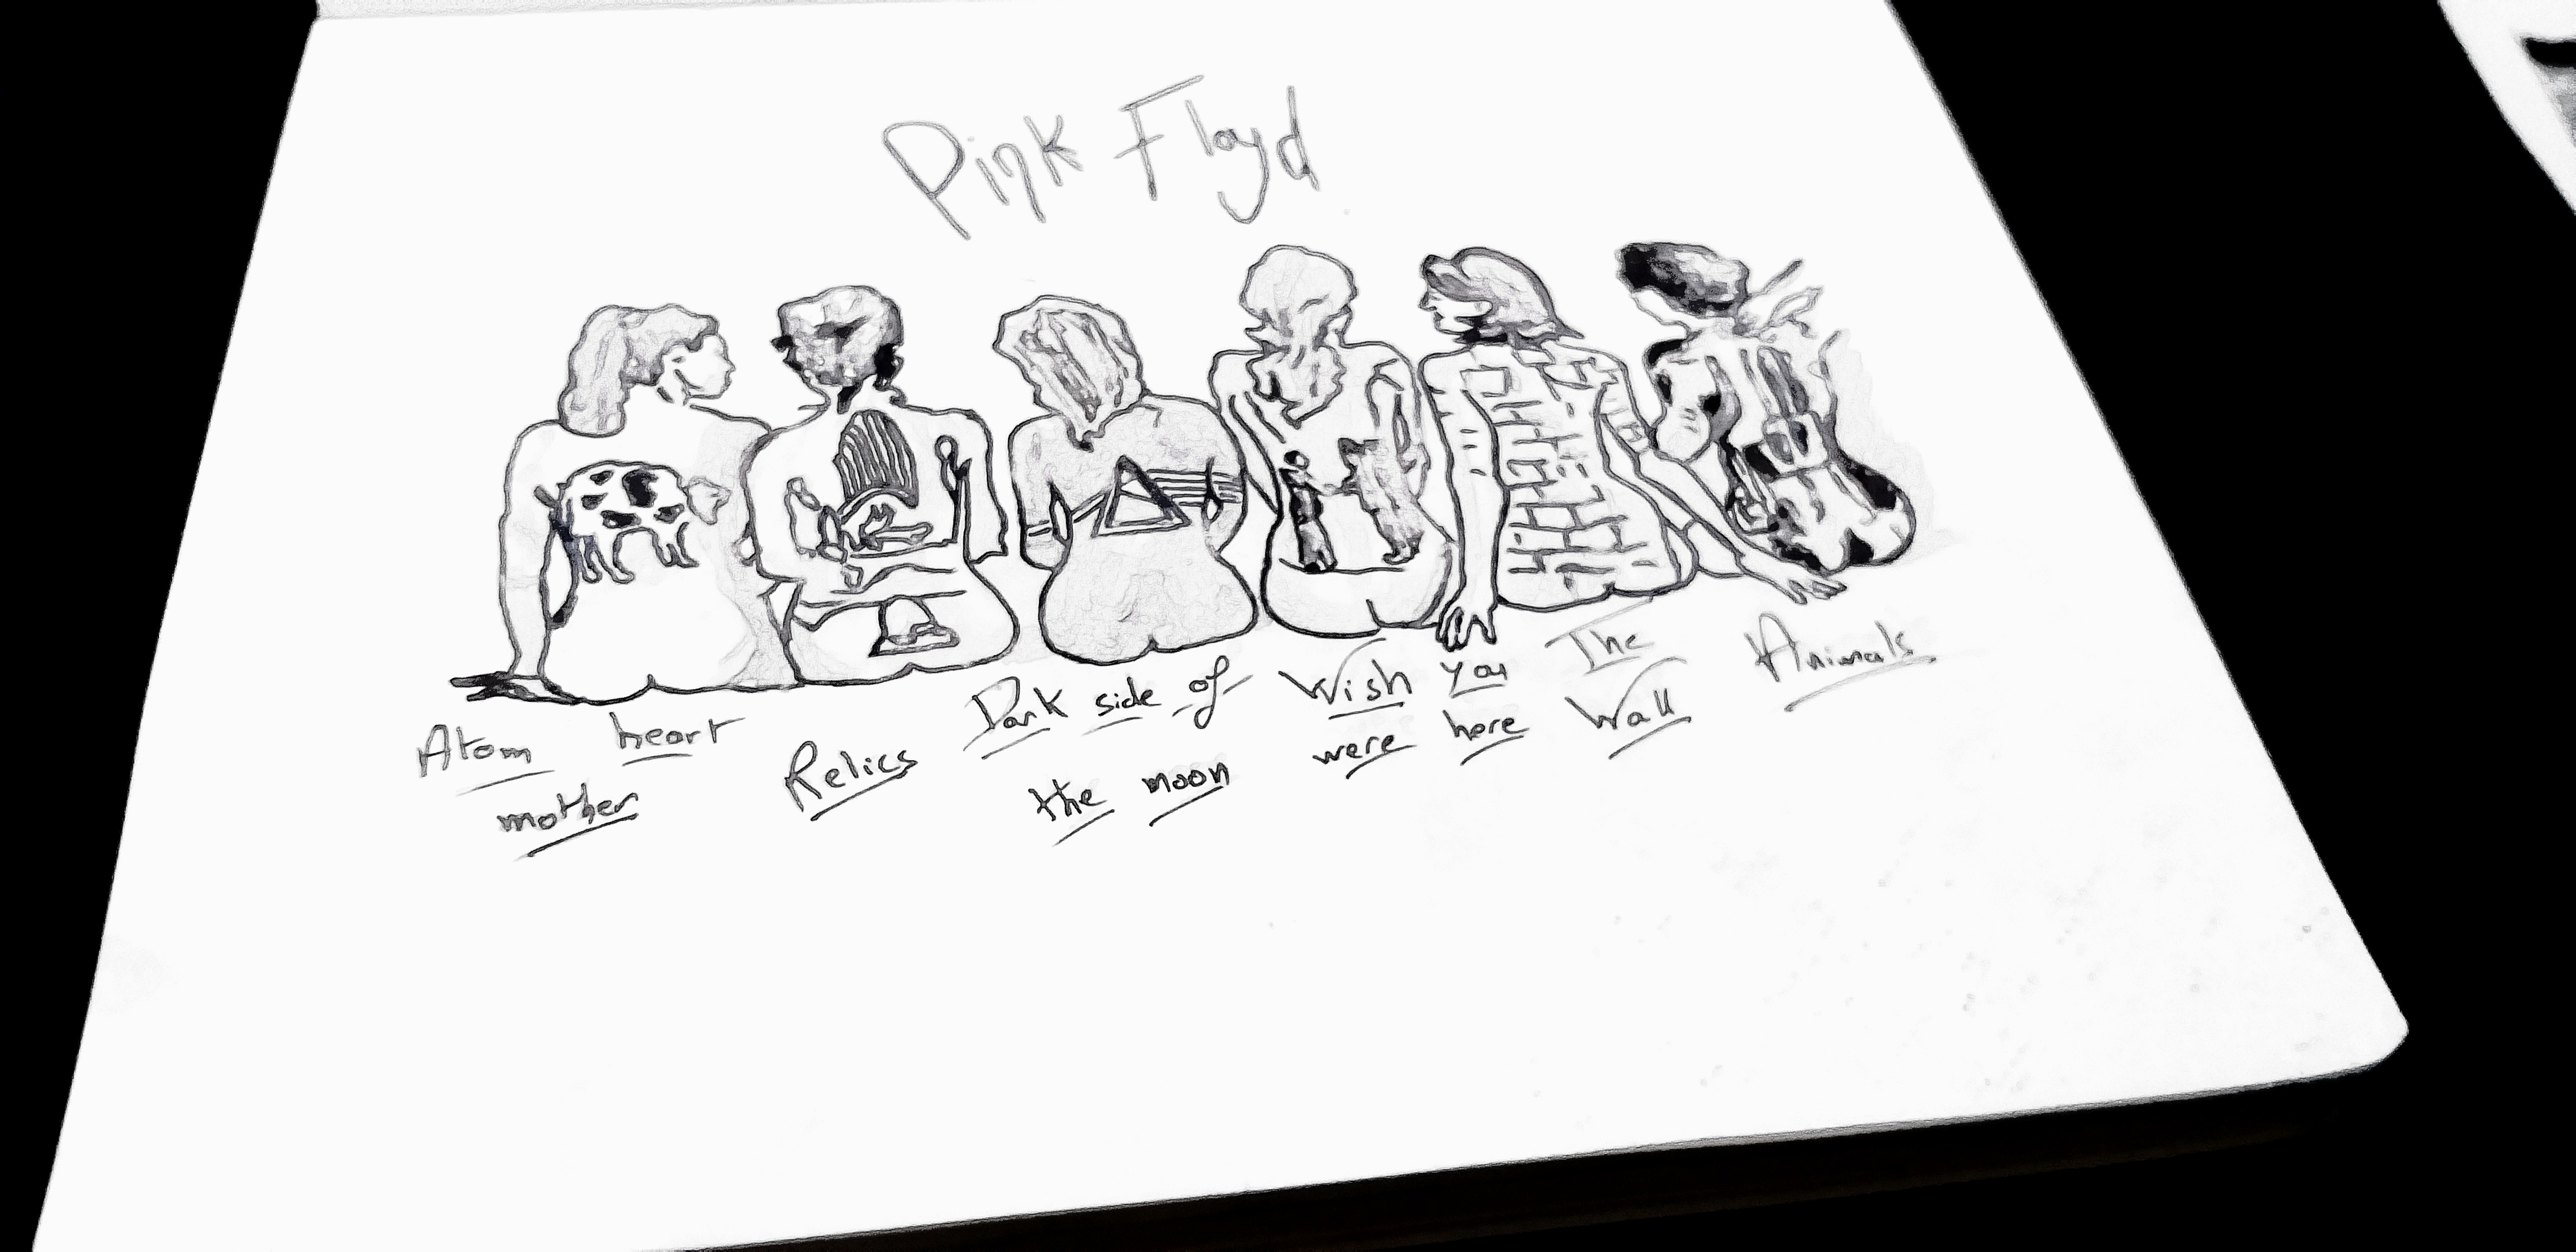 Pink Floyd
Atom heart
mother
Relics
Dark side of
the moon
Wish you
were here
The
Wall
Animals